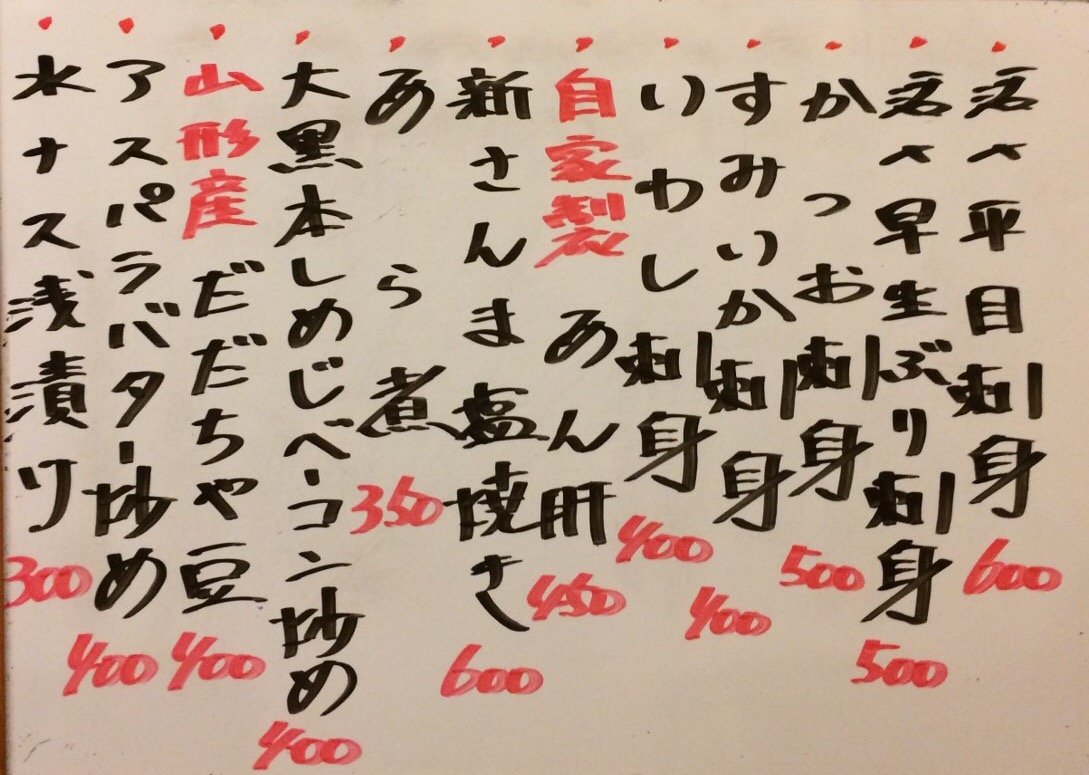 活〆平目刺身 600
活〆早生ぶり刺身 500
かつお刺身 500
すみいか刺身 400
いわし刺身 400
自家製 あん肝 450
新さんま塩焼き 600
あら煮 350
大黒本しめじベーコン炒め 400
山形産 だだちゃ豆 400
アスパラバター炒め 400
水ナス浅漬け 300